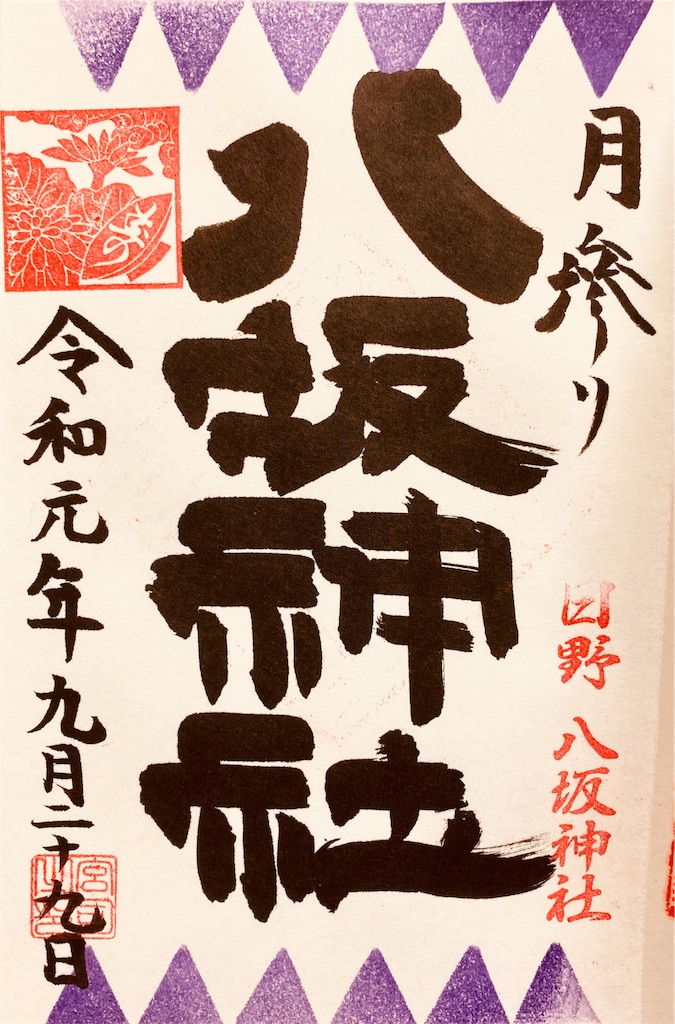 月参り
日野 八坂神社
八坂神社
令和元年九月二十九日